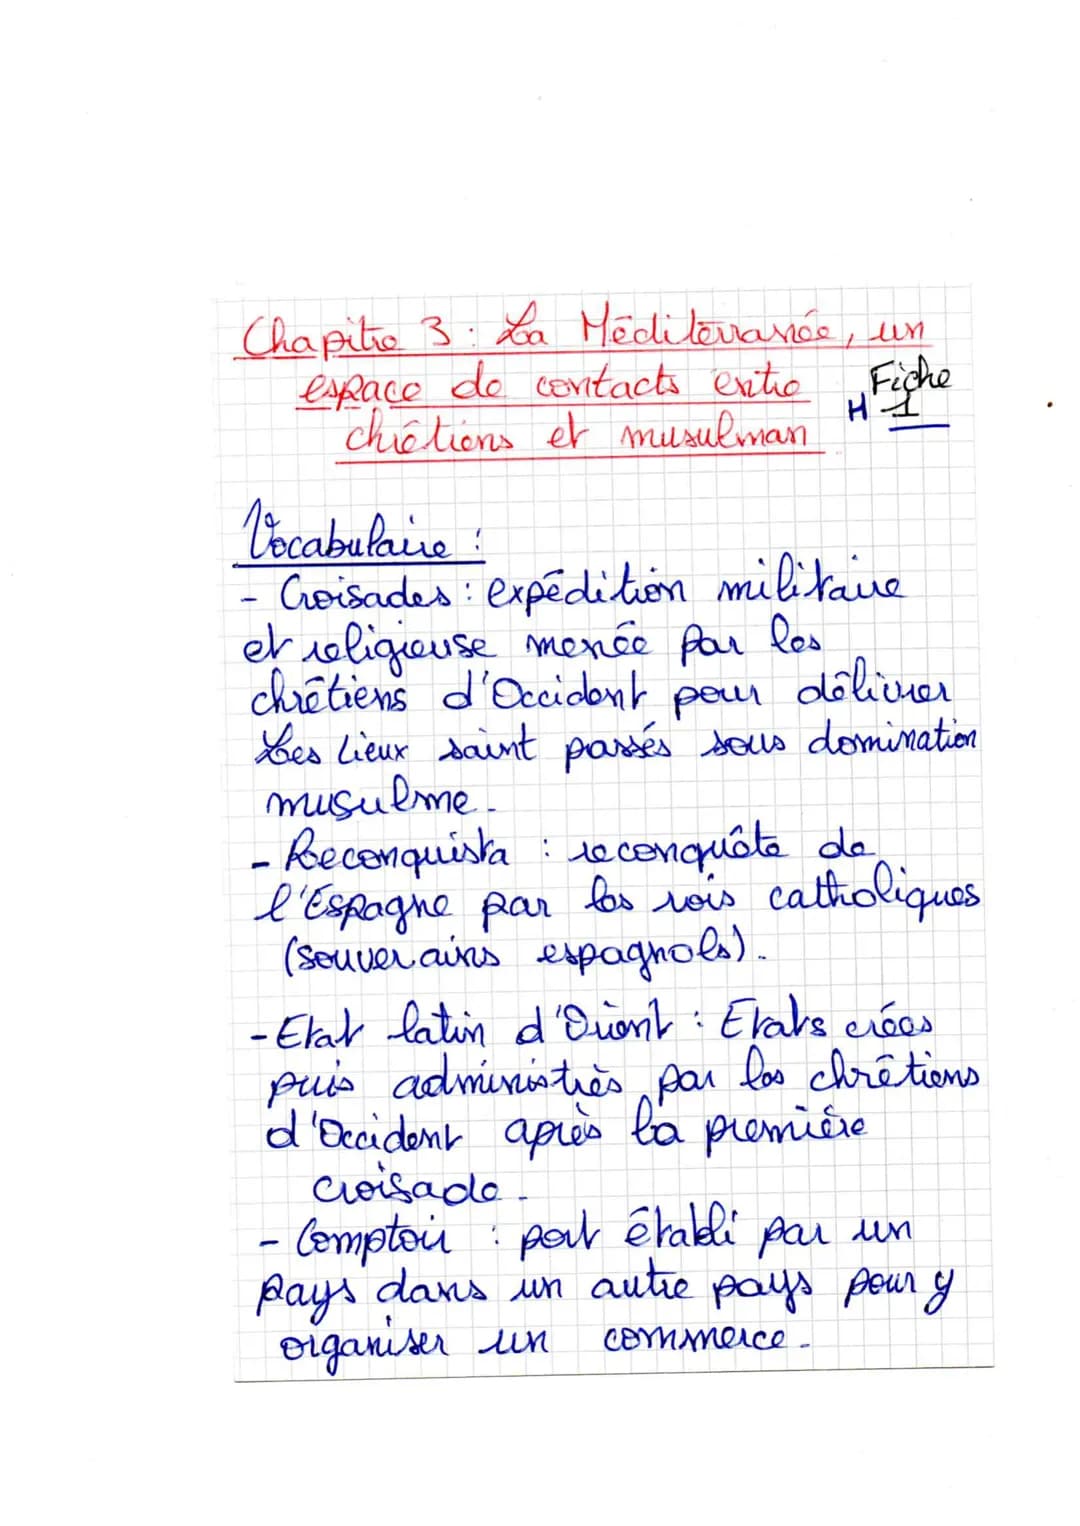 Chapitre 3 : La Méditerranée, un
espace de contacts entre
chrétiens et musulman
Fiche
H 1
Vocabulaire :
- Croisades : expédition militaire
et religieuse menée par les
chrétiens d'Occident pour délivrer
Les Lieux saint passés sous domination
musulme.
- Reconquista : reconquête de
l'Espagne par les rois catholiques
(souverains espagnols).
- Etat latin d'Orient : Etats créés
puis administrés par les chrétiens
d'Occident après la première
croisade.
- Comptoir : port établi par un
pays dans un autre pays pour y
organiser un commerce.